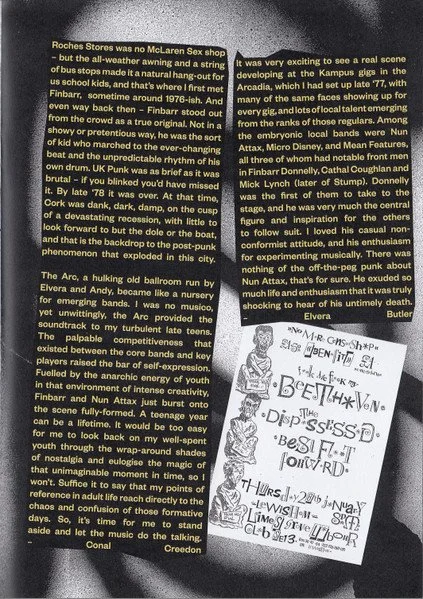 Roches Stores was no McLaren Sex shop
– but the all-weather awning and a string
of bus stops made it a natural hang-out for
us school kids, and that's where I first met
Finbarr, sometime around 1976-ish. And
even way back then – Finbarr stood out
from the crowd as a true original. Not in a
showy or pretentious way, he was the sort
of kid who marched to the ever-changing
beat and the unpredictable rhythm of his
own drum. UK Punk was as brief as it was
brutal – if you blinked you'd have missed
it. By late '78 it was over. At that time,
Cork was dank, dark, damp, on the cusp
of a devastating recession, with little to
look forward to but the dole or the boat,
and that is the backdrop to the post-punk
phenomenon that exploded in this city.
The Arc, a hulking old ballroom run by
Elvera and Andy, became like a nursery
for emerging bands. I was no musico,
yet unwittingly, the Arc provided the
soundtrack to my turbulent late teens.
The palpable competitiveness that
existed between the core bands and key
players raised the bar of self-expression.
Fuelled by the anarchic energy of youth
in that environment of intense creativity,
Finbarr and Nun Attax just burst onto
the scene fully-formed. A teenage year
can be a lifetime. It would be too easy
for me to look back on my well-spent
youth through the wrap-around shades
of nostalgia and eulogise the magic of
that unimaginable moment in time, so I
won't. Suffice it to say that my points of
reference in adult life reach directly to the
chaos and confusion of those formative
days. So, it's time for me to stand
aside and let the music do the talking.
– Conal Creedon
It was very exciting to see a real scene
developing at the Kampus gigs in the
Arcadia, which I had set up late '77, with
many of the same faces showing up for
every gig, and lots of local talent emerging
from the ranks of those regulars. Among
the embryonic local bands were Nun
Attax, Micro Disney, and Mean Features,
all three of whom had notable front men
in Finbarr Donnelly, Cathal Coughlan and
Mick Lynch (later of Stump). Donnelly
was the first of them to take to the
stage, and he was very much the central
figure and inspiration for the others
to follow suit. I loved his casual non-
conformist attitude, and his enthusiasm
for experimenting musically. There was
nothing of the off-the-peg punk about
Nun Attax, that's for sure. He exuded so
much life and enthusiasm that it was truly
shocking to hear of his untimely death.
– Elvera Butler
BEETH*V*N
THE
DISPOSSESSED
BEST F**T
FORWARD
THURSDAY 20th JANUARY
LEWISHAM
LABOUR
CLUB SE13.